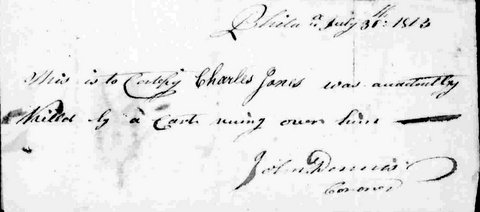 Philad.a July 31.th 1813
This is to Certify Charles Jones was accidently
killed by a Cart runing over him
John Dennis
Coroner